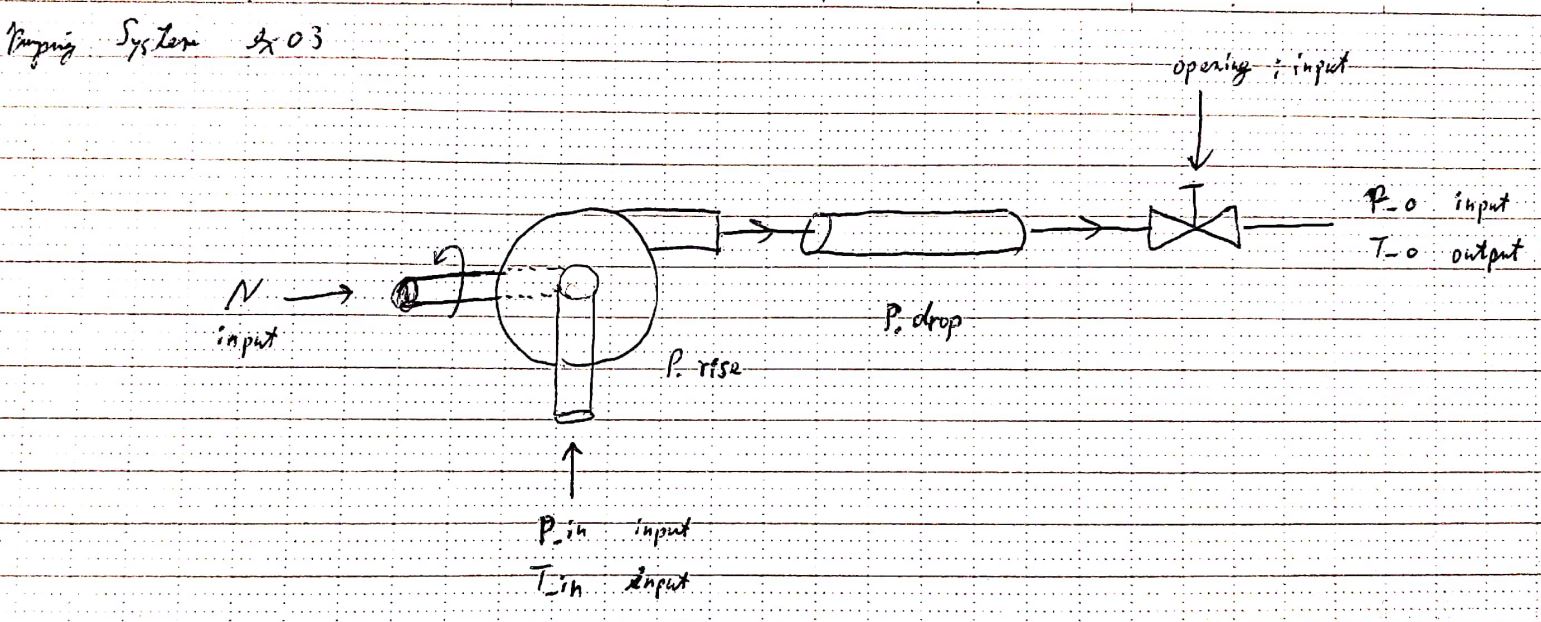 Pumping System Ex 03
opening : input
P_o input
T_o output
N
input
P. drop
P. rise
P_in input
T_in input